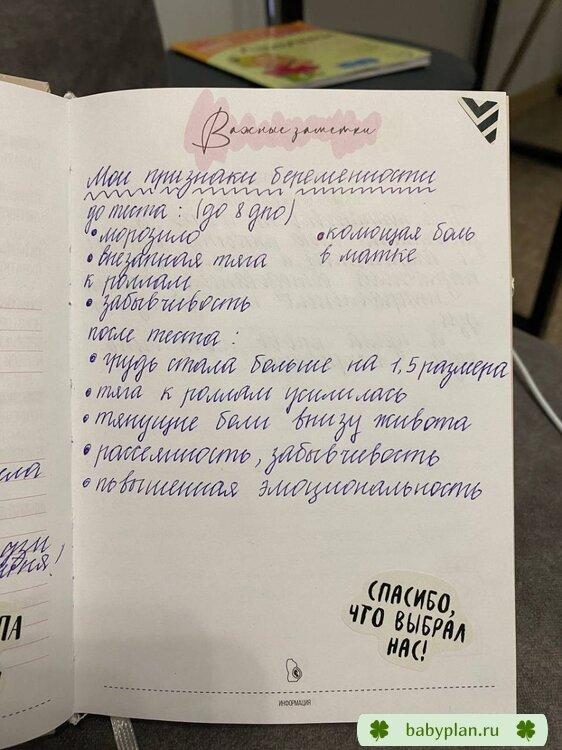 Важные заметки
Мои признаки беременности
до теста: (до 8 дпо)
• морозило
• колющая боль
• внезапная тяга
в матке
к роллам
• забывчивость
после теста:
• грудь стала больше на 1,5 размера
• тяга к роллам усилилась
• тянущие боли внизу живота
• рассеянность, забывчивость
• повышенная эмоциональность
СПАСИБО,
ЧТО ВЫБРАЛ
НАС!
ИНФОРМАЦИЯ
babyplan.ru